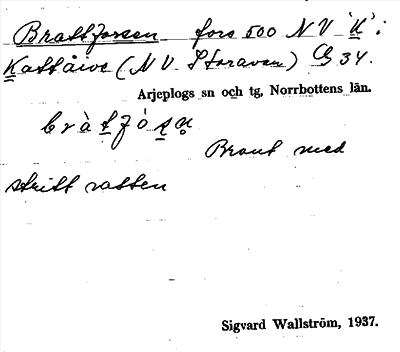 Brattforsen fors 500 NV 'K' i
Kattåive (NV. Storavan) Cg 34.
Arjeplogs sn och tg, Norrbottens län.
Brant med
stritt vatten
Sigvard Wallström, 1937.